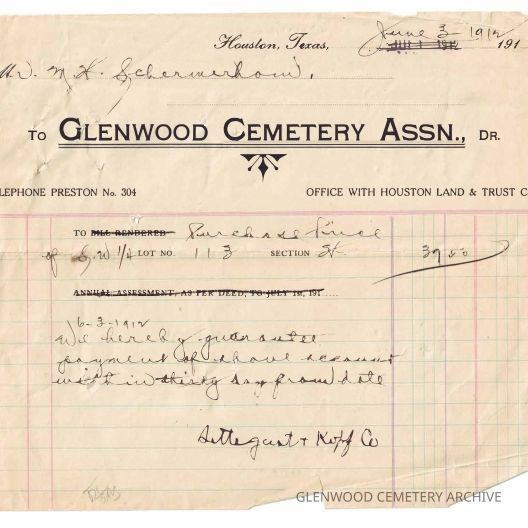 Houston, Texas, June 3 1912 191
JUL 1 1912
Mr. M. H. Schermerhorn,
To GLENWOOD CEMETERY ASSN., DR.
LEPHONE PRESTON No. 304 OFFICE WITH HOUSTON LAND & TRUST C
TO BILL RENDERED Purchase Price
of S.W 1/4 LOT NO. 113 SECTION
ANNUAL ASSESSMENT, AS PER DEED, TO JULY 1st, 191 .....
6-3-1912
We hereby guarantee
payment of above account
within thirty day from date
Settegast & Kopf Co
GLENWOOD CEMETERY ARCHIVE